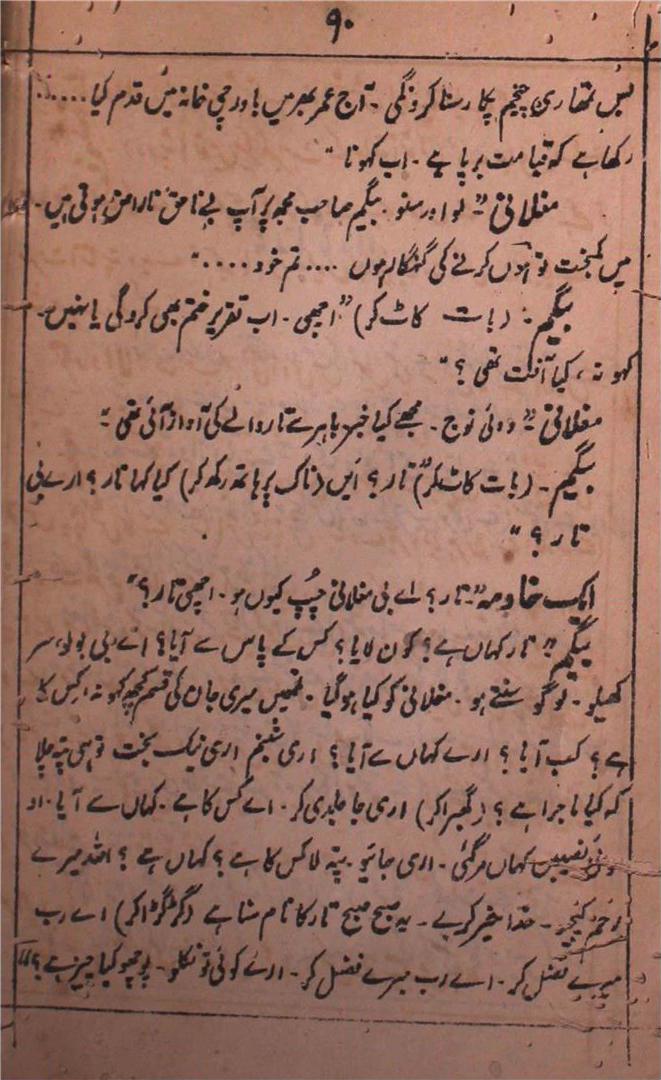 ۹۰
بس تمھاری چیخم پکار سنا کرونگی ۔ آج عمر بھر میں باورچی خانہ میں قدم کیا .....
رکھا ہے کہ قیامت برپا ہے ۔ اب کہو نا "
مغلانی " لو اور سنو ۔ بیگم صاحب مجھ پر آپ بے ناحق ناراض ہوتی ہیں ۔
میں کمبخت تو ہوں کرنے کی گنہگار ہوں .... تم خود ...."
بیگم ۔ (بات کاٹ کر) " اچھی ۔ اب تقریر ختم بھی کرو گی یا نہیں ۔
کہو نہ ، کیا آفت تھی ؟ "
مغلانی " دوئی نوج ۔ مجھے کیا خبر باہر سے تار والے کی آواز آئی تھی "
بیگم ۔ (بات کاٹ کر) " تار ؟ ایں (ناک پر ہاتھ رکھ کر) کیا کہا تار ؟ ارے بی
تار ؟ "
ایک خادمہ " تار ؟ اے بی مغلانی چُپ کیوں ہو ۔ اچھی تار ؟ "
بیگم " تار کہاں ہے ؟ کون لایا ؟ کس کے پاس سے آیا ؟ اے بی بولو سر
کھیلو ۔ لوگو سنتے ہو ۔ مغلانی کو کیا ہو گیا ۔ تمہیں میری جان کی قسم کچھ کہو نہ ، کس کا
ہے ؟ کب آیا ؟ ارے کہاں سے آیا ؟ اری شبنم اری نیک بخت تو ہی پتہ چلا
کہ کیا ماجرا ہے ؟ (گھبرا کر) اری جا جلدی کر ۔ اے کس کا ہے ۔ کہاں سے آیا ۔ او
نصیبن کہاں مر گئی ۔ اری جائیو ۔ پتہ لا کس کا ہے ؟ کہاں ہے ؟ اللہ میرے
رحم کیجیو ۔ خدا خیر کرے ۔ یہ صبح صبح تار کا نام سنا ہے (گڑگڑا کر) اے رب
میرے فضل کر ۔ اے رب میرے فضل کر ۔ ارے کوئی تو نکلو ۔ پوچھو کیا چیز ہے ؟ "